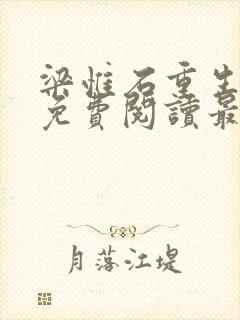 梁惟石重生
免費閱讀最
月落江堤